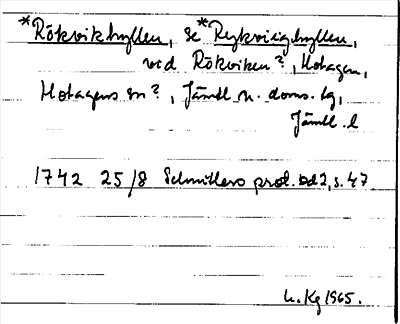 *Rökvikhyllen, se *Reykviighyllen,
vid Rökviken?, Hotagen,
Hotagens sn?, Jämtl. n. doms. tg,
Jämtl. l
1742 25/8 Schnitlers prot. bd 2, s. 47
L. Kg 1965.